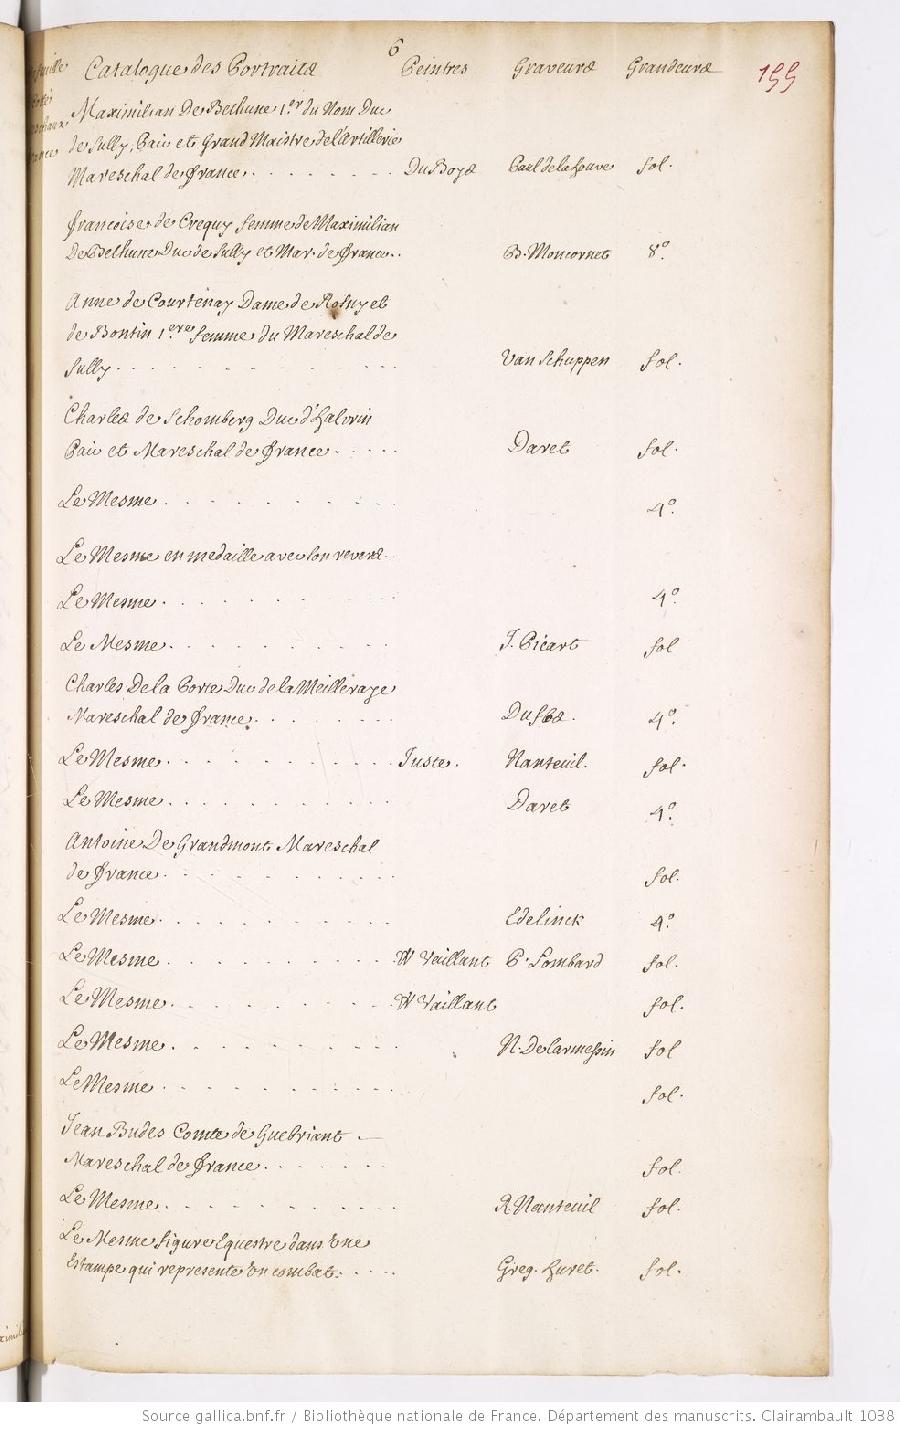 6
Catalogue des Portraits Peintres Graveurs Grandeurs 155
Maximilian De Bethune 1.er du Nom Duc
de Sully, Pair et Grand Maistre de l'Artillerie
Mareschal de france . . . . . . . Du Boys Carl de la houve fol.
francoise de Crequy femme de Maximilian
De Bethune Duc de Sully et Mar. de france . . B. Moncornet 8.o
Anne de Courtenay Dame de Rosny et
de Bontin 1.ere femme du Mareschal de
Sully . . . . . . . Van Schuppen fol.
Charles de Schomberg Duc d'Halwin
Pair et Mareschal de france . . . . . Daret fol.
Le Mesme . . . . . . . 4.o
Le Mesme en medaille avec son revers
Le Mesme . . . . . . . 4.o
Le Mesme . . . . . . . J. Picart fol
Charles De la Porte Duc de la Meilleraye
Mareschal de france . . . . . . . Duflos. 4.o
Le Mesme . . . . . . . Juste. Nanteuil. fol.
Le Mesme . . . . . . . Daret 4.o
Antoine De Grandmont Mareschal
de france . . . . . . . fol.
Le Mesme . . . . . . . Edelinck 4.o
Le Mesme . . . . . . . W Vaillant P. Lombard fol.
Le Mesme . . . . . . . W Vaillant fol.
Le Mesme . . . . . . . N. De larmessin fol
Le Mesme . . . . . . . fol.
Jean Budes Comte de Guebriant
Mareschal de france . . . . . . . fol.
Le Mesme . . . . . . . R Nanteuil fol.
Le Mesme figure Equestre dans Une
Estampe qui represente Un combat . . . . Greg. huret. fol.
Source gallica.bnf.fr / Bibliothèque nationale de France. Département des manuscrits. Clairambault 1038